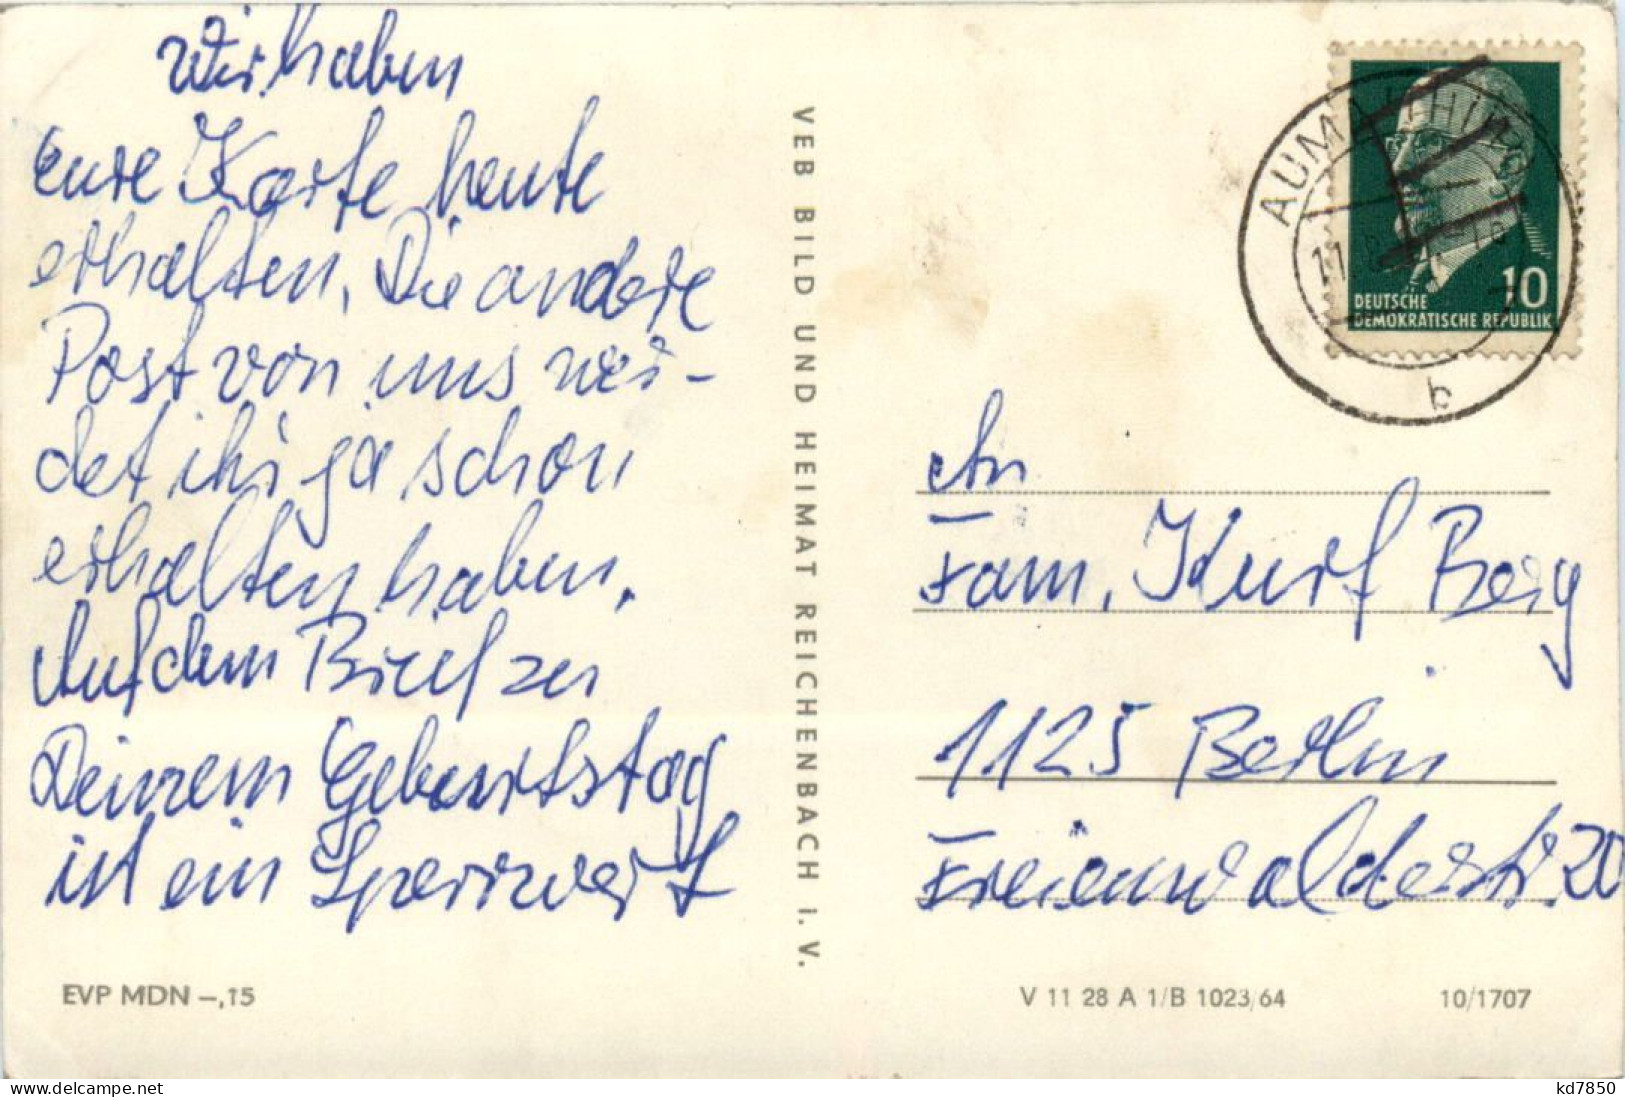 Wir haben
eure Karte heute
erhalten. Die andere
Post von uns wer-
det ihr ja schon
erhalten haben.
Auf dem Brief zu
Deinem Geburtstag
ist ein Sperrwert
EVP MDN –,15
VEB BILD UND HEIMAT REICHENBACH I. V.
AUMA (THÜR)
11
b
10
DEUTSCHE
DEMOKRATISCHE REPUBLIK
An
Fam. Kurt Berg
1125 Berlin
Freienwalderstr. 20
V 11 28 A 1/B 1023/64
10/1707
https://www.delcampe.net
kd7850